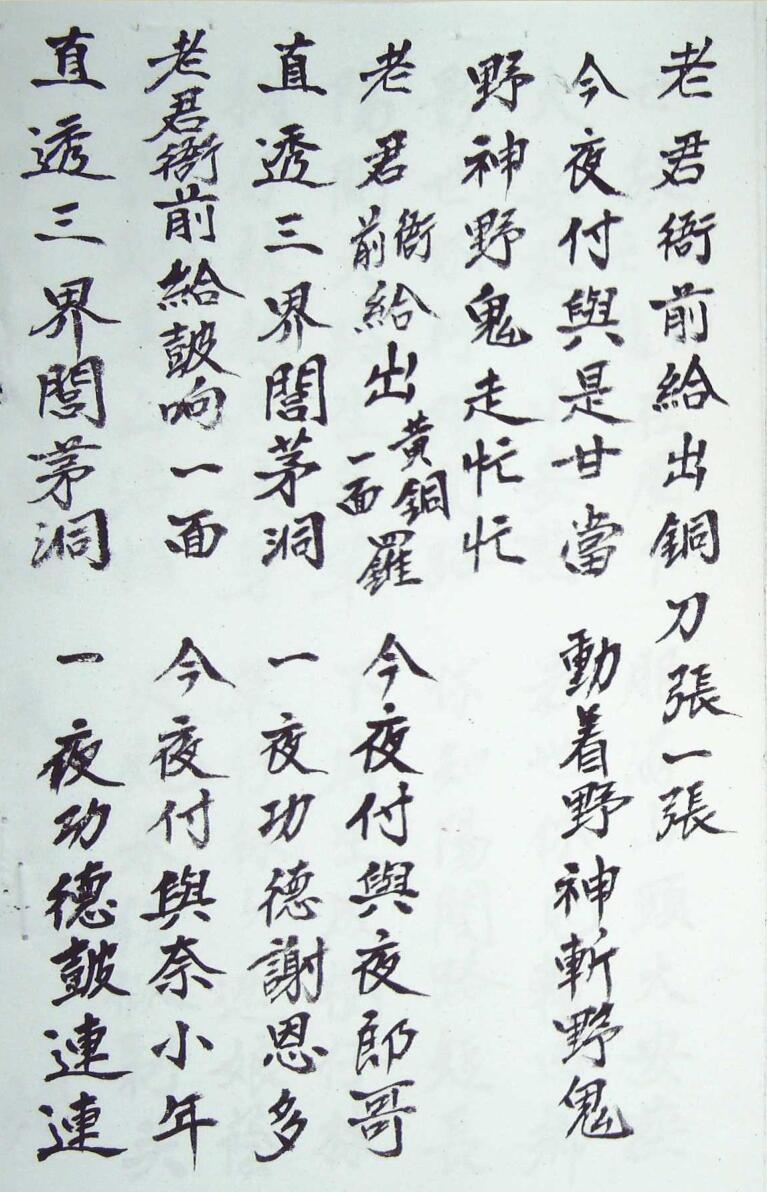 老君衙前給出銅刀張一張
今夜付與是甘當 動着野神斬野鬼
野神野鬼走忙忙
老君衙前給出黃銅一面鑼 今夜付與夜郎哥
直透三界閭茅洞 一夜功德謝恩多
老君衙前給鼓响一面 今夜付與奈小年
直透三界閭茅洞 一夜功德鼓連連